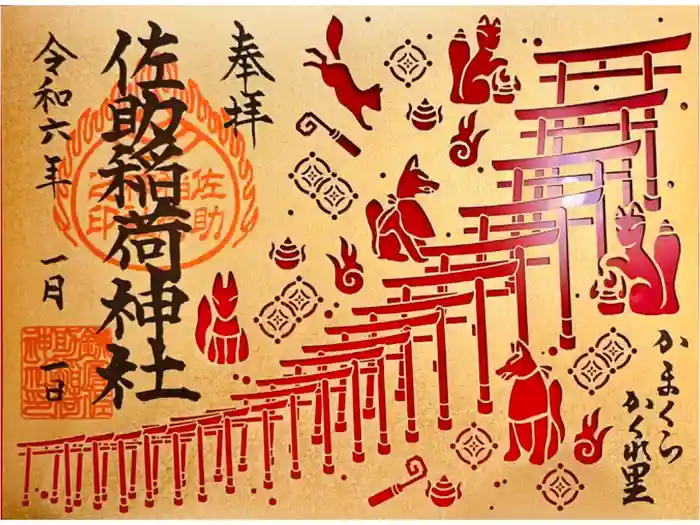 奉拝
佐助稲荷神社
令和六年
一月 一日
かまくら
かくれ里
佐助